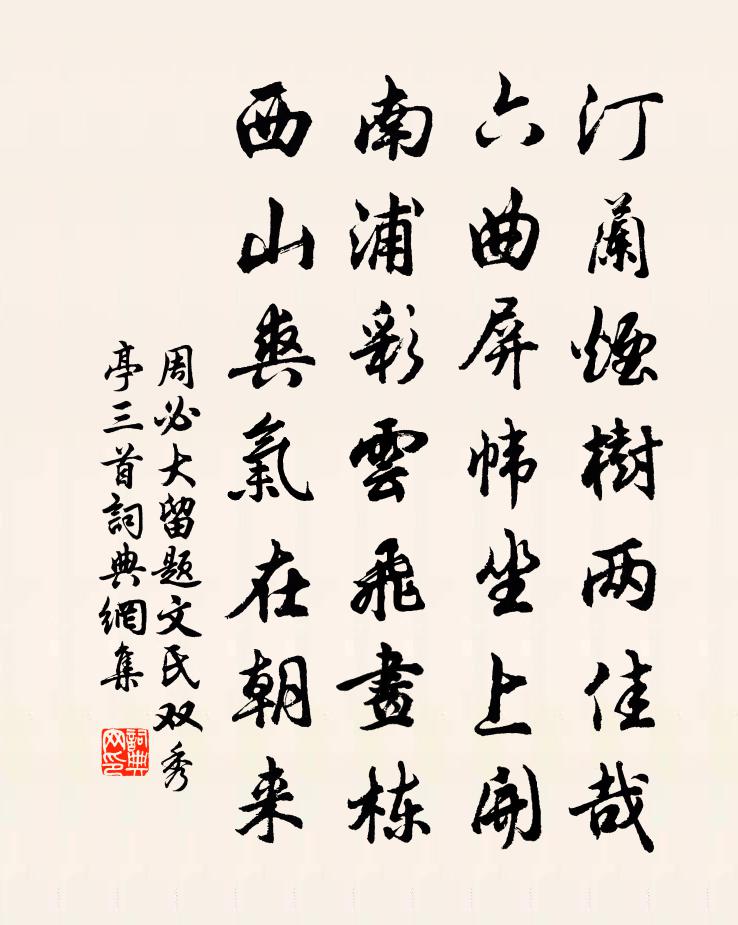 汀蘭煙樹两佳哉
六曲屏帏坐上開
南浦彩雲飛畫栋
西山爽氣在朝来
周必大留题文氏双秀
亭三首詞典網集
詞典网印